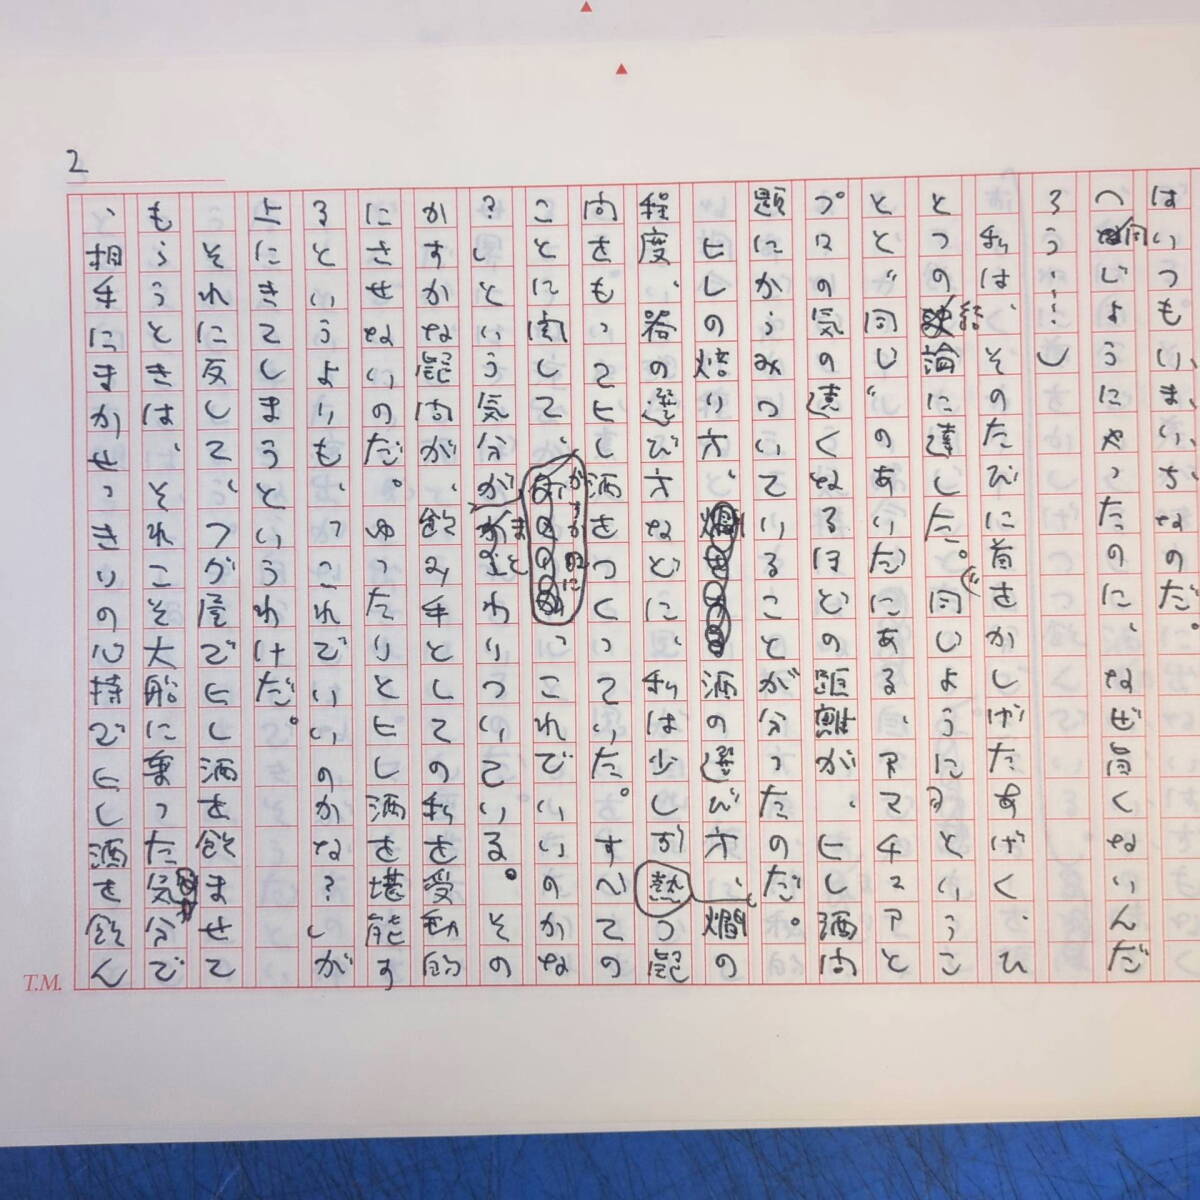 2
はいつもいまいちなのだ。
へ同じようにやったのに、なぜ旨くないんだ
ろう…」
私は、そのたびに首をかしげたあげく、ひ
とつの結論に達した。同じように見ということ
とと"同じ"のあいだにある、アマチュアと
プロの気の遠くなるほどの距離が、ヒレ酒問
題にからみついていることが分ったのだ。
ヒレの焙り方、酒の選び方、燗の
程度、器の選び方などに、私は少しずつ疑
問をもってヒレ酒をつくっていた。すべての
ことに関して、かすかに「これでいいのかな
」という気分がまとわりついている。その
かすかな疑問が、飲み手としての私を受動的
にさせないのだ。ゆったりとヒレ酒を堪能す
るというよりも、「これでいいのかな?」が
よぎってしまうというわけだ。
それに反して、フグ屋でヒレ酒を飲ませて
もらうときは、それこそ大船に乗った気分で
、相手にまかせっきりの心持でヒレ酒を飲ん
T.M.